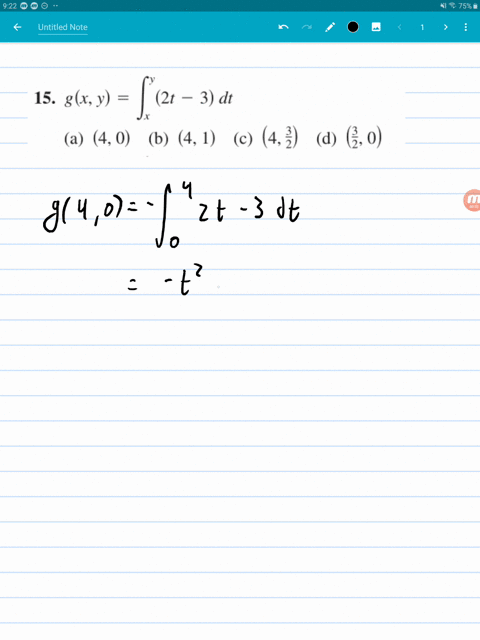 9:22 75%
Untitled Note 1
15. g(x, y) = ∫_x^y (2t − 3) dt
(a) (4, 0) (b) (4, 1) (c) (4, 3/2) (d) (3/2, 0)
g(4,0) = -∫_0^4 2t - 3 dt
= -t²